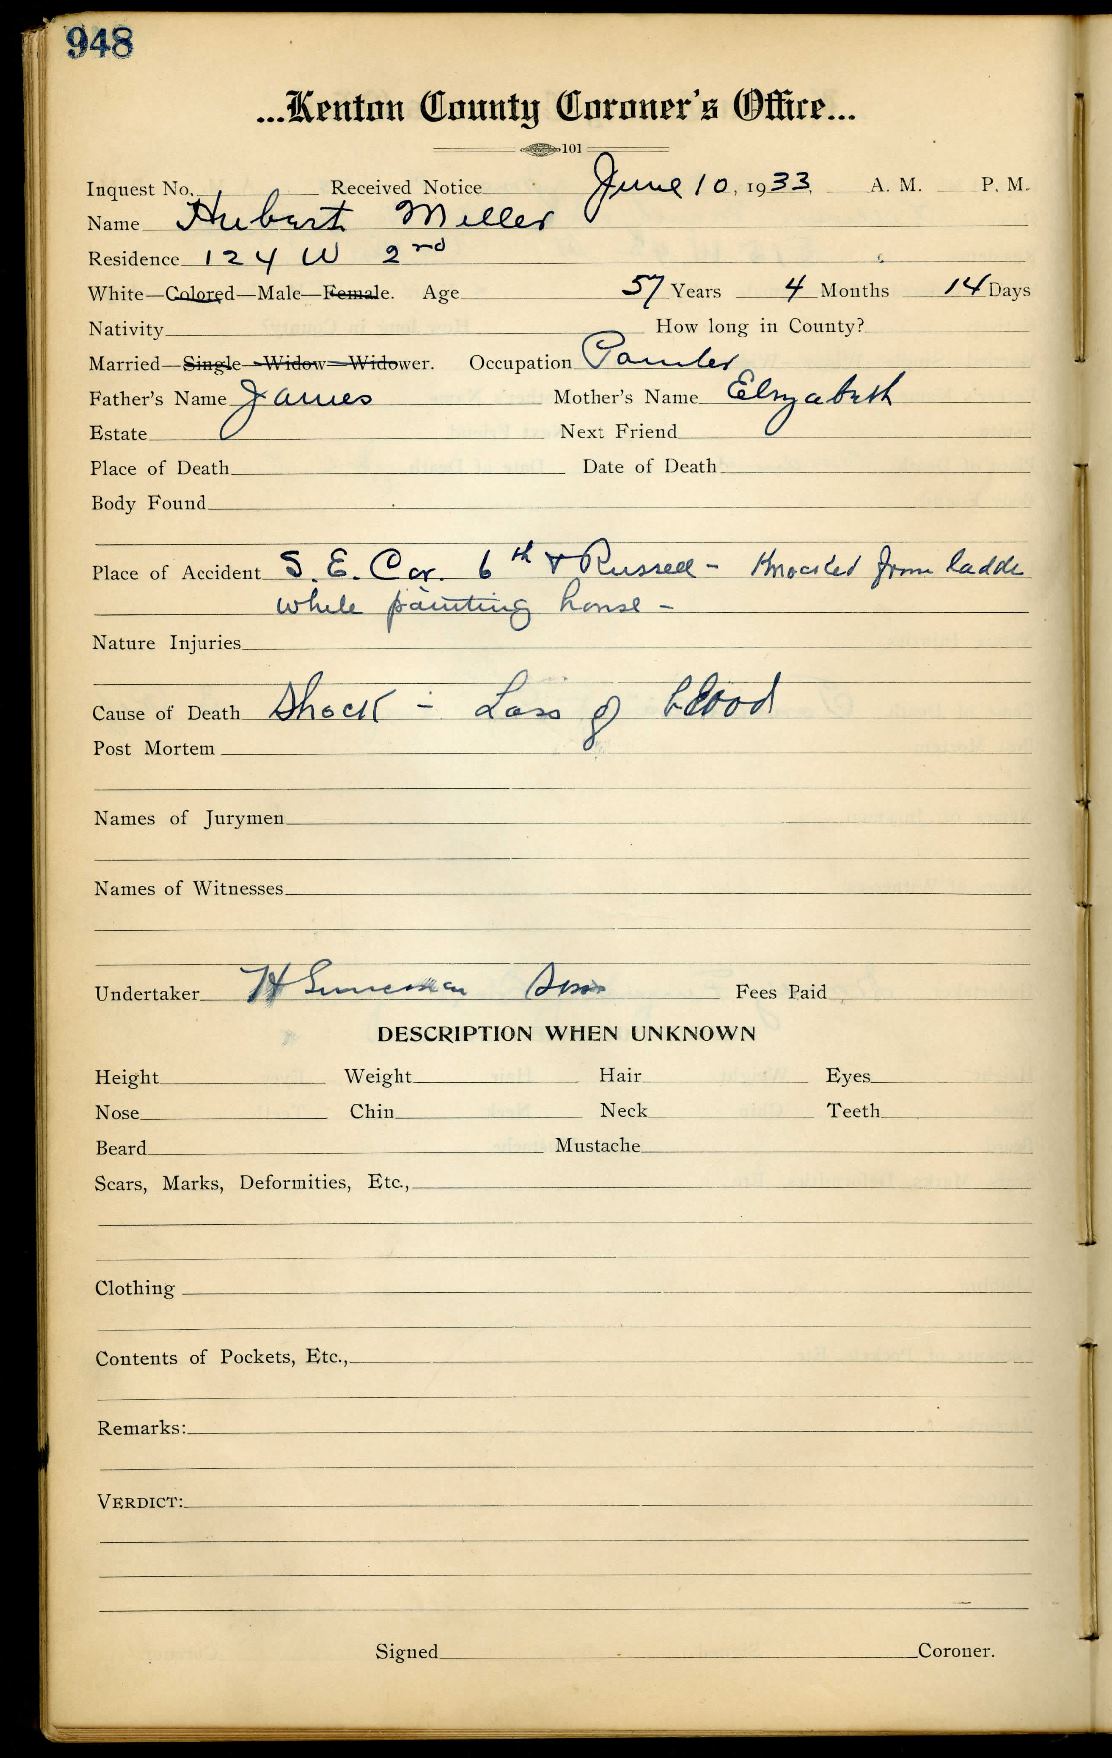 948
...Kenton County Coroner's Office...
101
Inquest No. Received Notice June 10, 1933, A. M. P. M.
Name Hubert Miller
Residence 124 W 2nd
White—Colored—Male—Female. Age 57 Years 4 Months 14 Days
Nativity How long in County?
Married—Single—Widow—Widower. Occupation Painter
Father's Name James Mother's Name Elizabeth
Estate Next Friend
Place of Death Date of Death
Body Found
Place of Accident S. E. Cor. 6th & Russell - Knocked from ladder
while painting house -
Nature Injuries
Cause of Death Shock - Loss of blood
Post Mortem
Names of Jurymen
Names of Witnesses
Undertaker H Sons Fees Paid
DESCRIPTION WHEN UNKNOWN
Height Weight Hair Eyes
Nose Chin Neck Teeth
Beard Mustache
Scars, Marks, Deformities, Etc.,
Clothing
Contents of Pockets, Etc.,
Remarks:
VERDICT:
Signed Coroner.